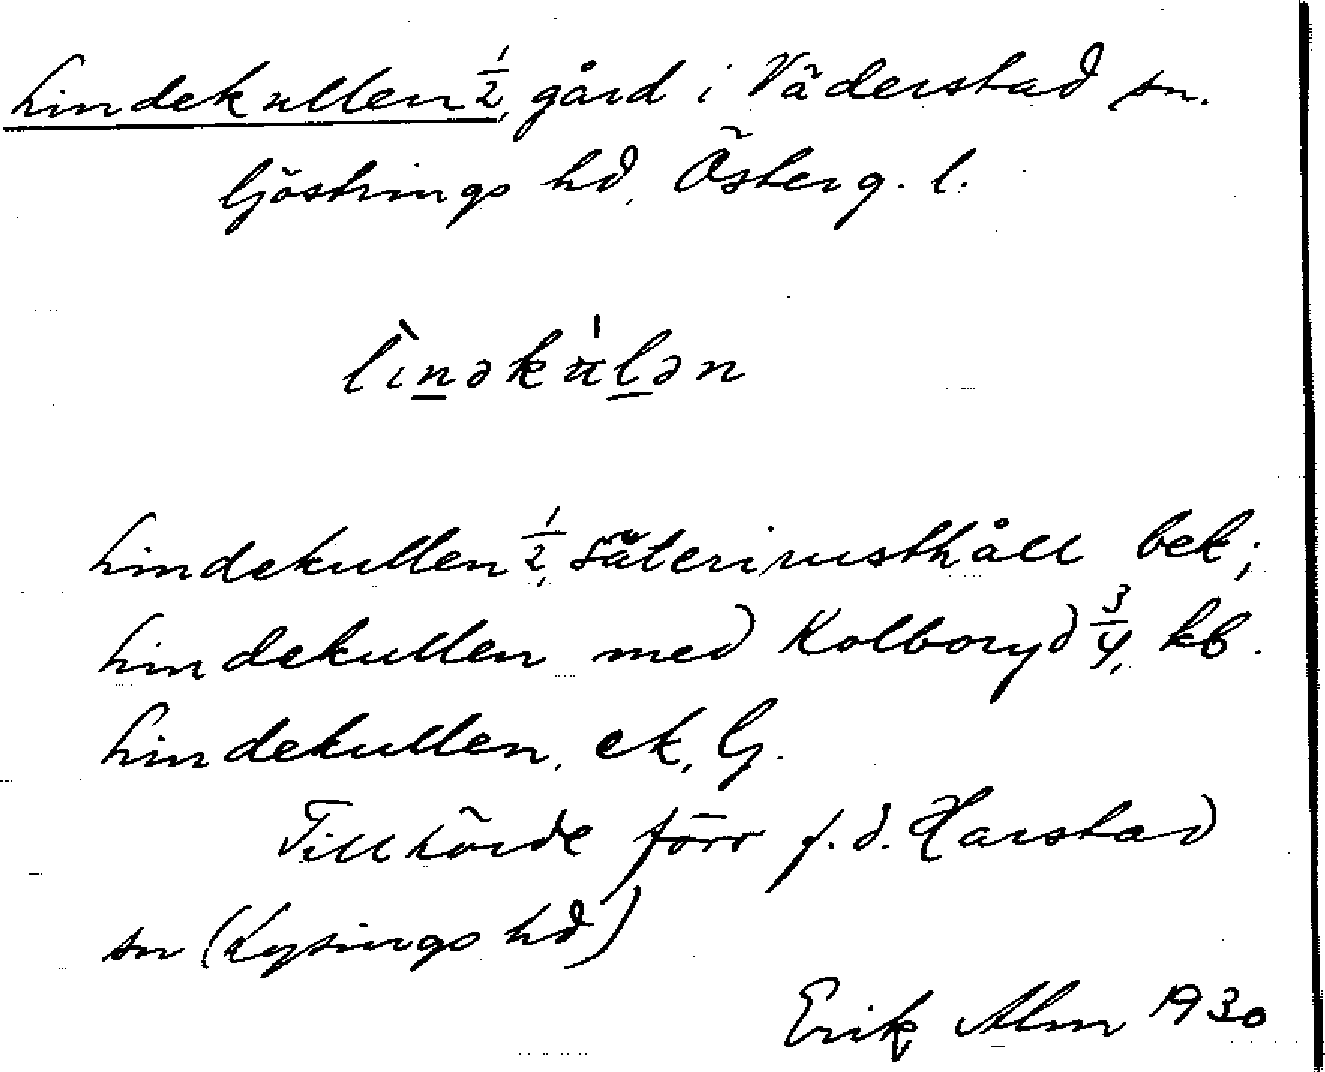 Lindekullen 1/2, gård i Väderstad sn.
Göstrings hd, Österg. l.
lìnəkúlən
Lindekullen 1/2, säterirusthåll bek;
Lindekullen med Kolboryd 3/4, kb.
Lindekullen, ek, G.
Tillhörde förr f.d. Harstad
sn (Lysings hd)
Erik Alm 1930